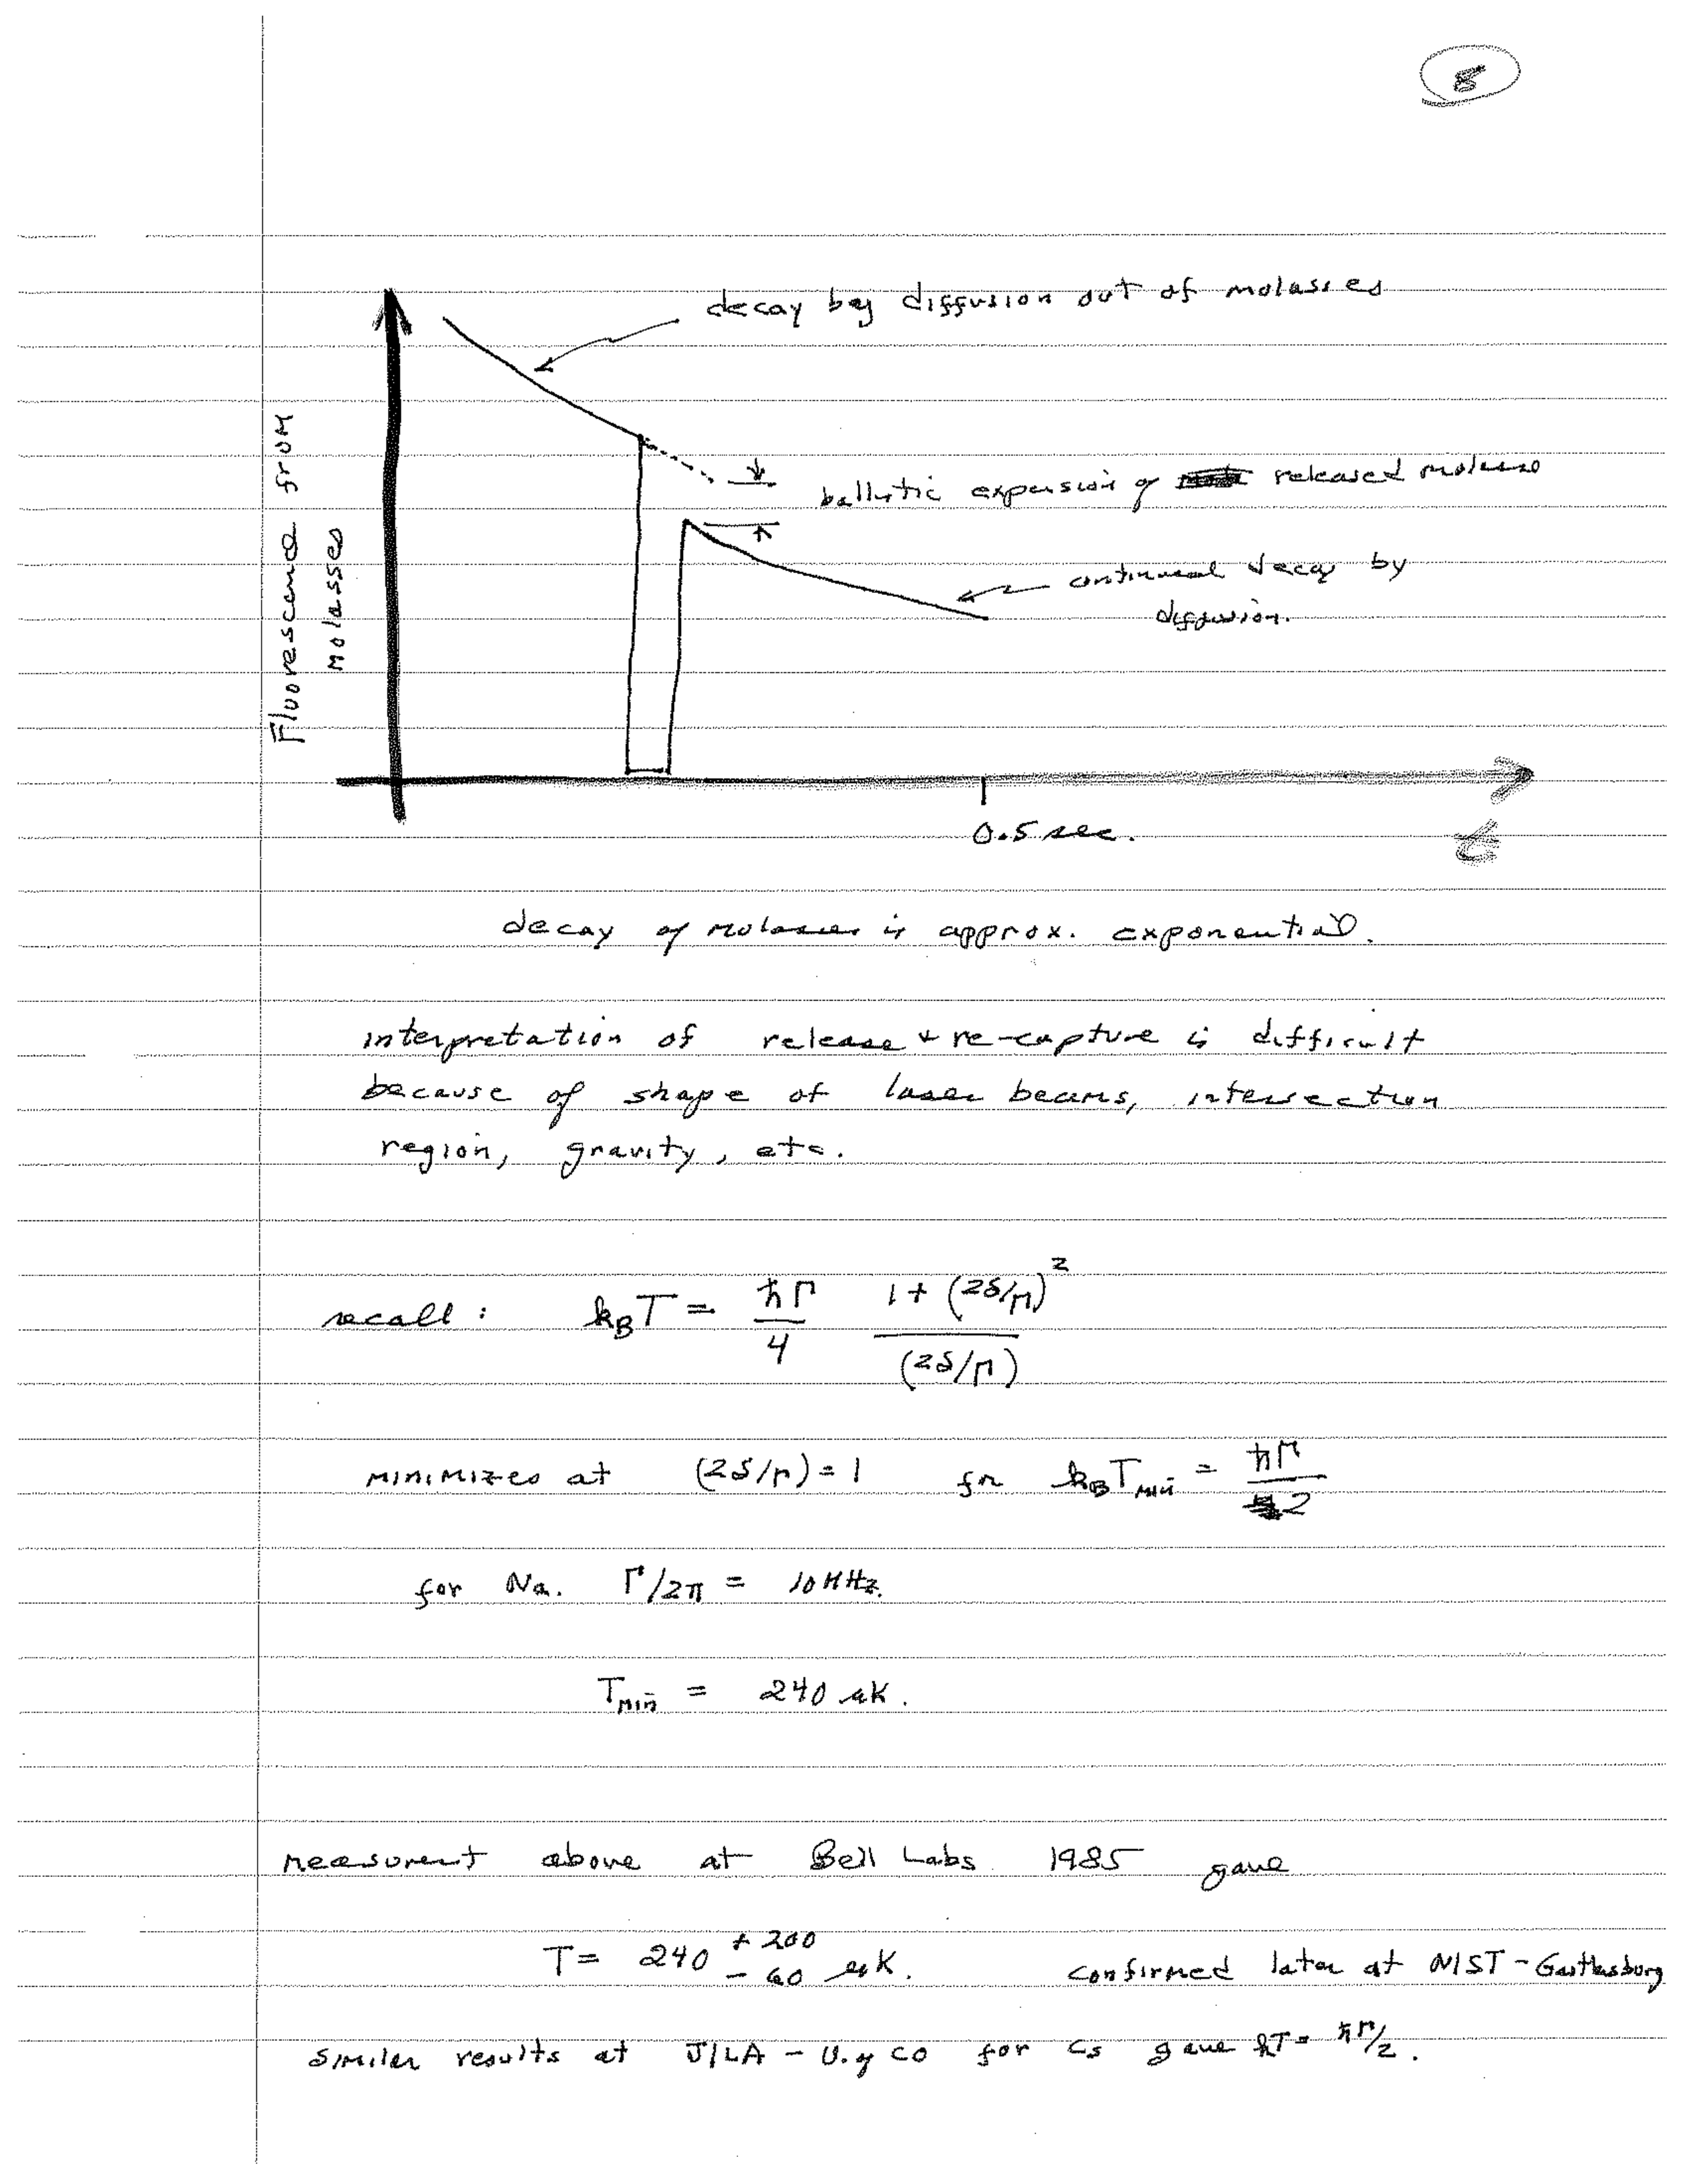 8
decay by diffusion out of molasses
Fluorescence from
molasses
ballistic expansion of released molasses
continued decay by
diffusion.
0.5 sec.
t
decay of molasses is approx. exponential.
interpretation of release + re-capture is difficult
because of shape of laser beams, intersection
region, gravity, etc.
recall: k_B T = ħΓ/4 (1 + (2δ/Γ)²)/(2δ/Γ)
minimizes at (2δ/Γ) = 1 for k_B T_min = ħΓ/2
for Na. Γ/2π = 10 MHz.
T_min = 240 μK.
measurent above at Bell Labs 1985 gave
T = 240 +200 -60 μK. confirmed later at NIST-
similar results at JILA - U. of CO for Cs gave kT = ħΓ/2.